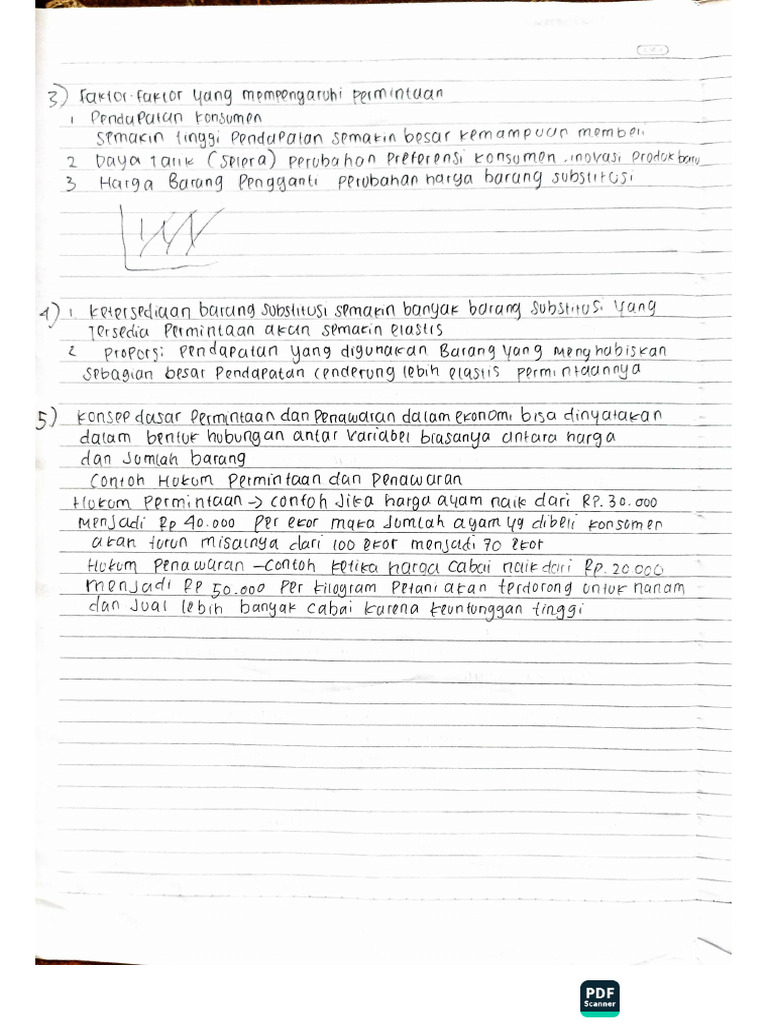 3) Faktor-faktor yang mempengaruhi permintaan
1 Pendapatan konsumen
semakin tinggi Pendapatan semakin besar kemampuan membeli
2 Daya Tarik (selera) perubahan Preferensi konsumen. inovasi Produk baru
3 Harga Barang Pengganti perubahan harga barang substitusi
4) 1. ketersediaan barang substitusi semakin banyak barang substitusi yang
Tersedia Permintaan akan semakin elastis
2 proporsi pendapatan yang digunakan Barang yang menghabiskan
sebagian besar Pendapatan cenderung lebih elastis permintaannya
5) Konsep dasar Permintaan dan Penawaran dalam ekonomi bisa dinyatakan
dalam bentuk hubungan antar variabel biasanya antara harga
dan Jumlah barang
Contoh Hukum Permintaan dan Penawaran
Hukum Permintaan → contoh Jika harga ayam naik dari RP. 30.000
menjadi Rp 40.000 Per ekor maka Jumlah ayam yg dibeli konsumen
akan turun misalnya dari 100 ekor menjadi 70 ekor
Hukum Penawaran - Contoh ketika harga cabai naik dari RP. 20.000
menjadi RP 50.000 Per kilogram Petani akan terdorong untuk nanam
dan Jual lebih banyak cabai karena keuntunggan tinggi
PDF
Scanner